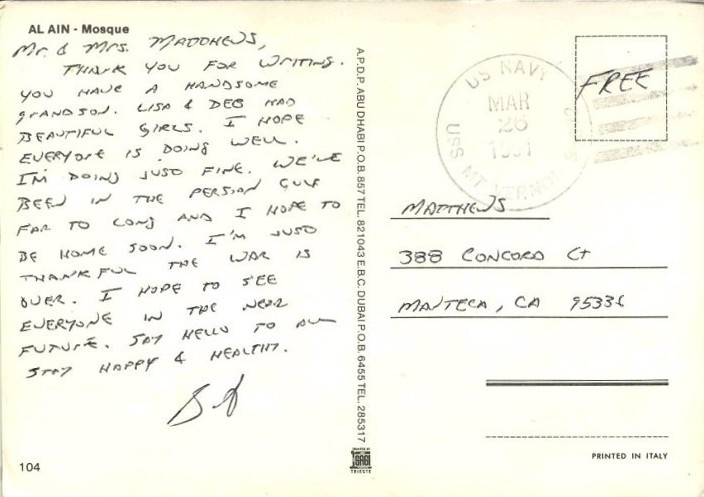 AL AIN - Mosque
Mr. & Mrs. MATTHEWS,
THANK YOU FOR WRITING.
YOU HAVE A HANDSOME
GRANDSON. LISA & DEB HAD
BEAUTIFUL GIRLS. I HOPE
EVERYONE IS DOING WELL.
I'M DOING JUST FINE. WE'VE
BEEN IN THE PERSION GULF
FAR TO LONG AND I HOPE TO
BE HOME SOON. I'M JUST
THANKFUL THE WAR IS
OVER. I HOPE TO SEE
EVERYONE IN THE NEAR
FUTURE. SAY HELLO TO ALL
STAY HAPPY & HEALTHY.
104
A.P.D.P. ABU DHABI P.O.B. 857 TEL. 821043 E.B.C. DUBAI P.O.B. 6455 TEL. 285317
TRIESTE
US NAVY
MAR
26
1991
USS MT VERNON
FREE
MATTHEWS
388 CONCORD Ct
MANTECA, CA 95336
PRINTED IN ITALY